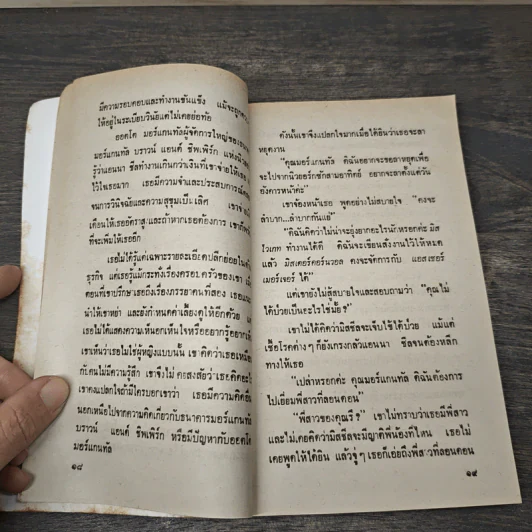 มีความรอบคอบและทำงานขันแข็ง แม้จะถูก
ให้อยู่ในระเบียบวินัยแต่ไม่เคยย่อท้อ
ออตโต มอร์แกนทัลผู้จัดการใหญ่ของธนา
มอร์แกนทัล บราวน์ แอนด์ ชิพเพิร์ก แห่งนิว
รู้ว่าแอนนา ซีลทำงานเกินกว่าเงินที่เขาจ่ายให้เธอ
ไว้ใจเธอมาก เธอมีความจำและประสบการณ์
จนการวินิจฉัยและความสุขุมเป็นเลิศ เขาจ่าย
เดือนให้เธออัตราสูงและถ้าหากเธอต้องการ เขาก็พร้อม
ที่จะเพิ่มให้เธออีก
เธอไม่ได้รู้แต่เฉพาะรายละเอียดปลีกย่อยใน
ธุรกิจ แต่เธอรู้แม้กระทั่งเรื่องครอบครัวของเขา เมื่อ
ตอนที่เขาปรึกษาเธอถึงเรื่องภรรยาคนที่สอง เธอแนะ
นำให้เขาหย่า และยังกำหนดค่าเลี้ยงดูให้อีกด้วย
เธอไม่ได้แสดงความเห็นอกเห็นใจหรืออยากรู้อยากเห็น
เขาเห็นว่าเธอไม่ใช่ผู้หญิงแบบนั้น เขาคิดว่าเธอเหมือน
กับคนไม่มีความรู้สึก เขาจึงไม่เคยสงสัยว่าเธอคิดอะไร
เขาคงแปลกใจถ้ามีใครบอกเขาว่า เธอมีความคิดอื่น
นอกเหนือไปจากความคิดเกี่ยวกับธนาคารมอร์แกนทัล
บราวน์ แอนด์ ชิพเพิร์ก หรือมีปัญหากับออตโต
มอร์แกนทัล
๑๘
ดังนั้นเขาจึงแปลกใจมากเมื่อได้ยินว่าเธอจะลา
หยุดงาน
"คุณมอร์แกนทัล ดิฉันอยากจะขอลาหยุดเพื่อ
จะไปจากนิวยอร์กซักสามอาทิตย์ อยากจะลาตั้งแต่วัน
อังคารหน้าค่ะ"
เขาจ้องหน้าเธอ พูดอย่างไม่สบายใจ "คงจะ
ลำบาก...ลำบากกันแย่"
"ดิฉันคิดว่าไม่น่าจะยุ่งยากอะไรนักหรอกค่ะ มิส
ไวเกท ทำงานได้ดี ดิฉันจะเขียนสั่งงานไว้ให้หมด
แล้ว มิสเตอร์คอร์นวอล คงจะจัดการกับ แอสเชอร์
เมอร์เจอร์ ได้"
แต่เขายังไม่สู้สบายใจและสอบถามว่า "คุณไม่
ได้ป่วยเป็นอะไรใช่มั้ย?"
เขาไม่ได้คิดว่ามิสซีลจะเจ็บไข้ได้ป่วย แม้แต่
เชื้อโรคต่างๆ ก็ยังเกรงกลัวแอนนา ซีลจนต้องหลีก
ทางให้เธอ
"เปล่าหรอกค่ะ คุณมอร์แกนทัล ดิฉันต้องการ
ไปเยี่ยมพี่สาวที่ลอนดอน"
"พี่สาวของคุณรึ?" เขาไม่ทราบว่าเธอมีพี่สาว
และไม่เคยคิดว่ามิสซีลจะมีญาติพี่น้องที่ไหน เธอไม่
เคยพูดให้ได้ยิน แล้วจู่ๆ เธอก็เอ่ยถึงพี่สาวที่ลอนดอน
๑๙